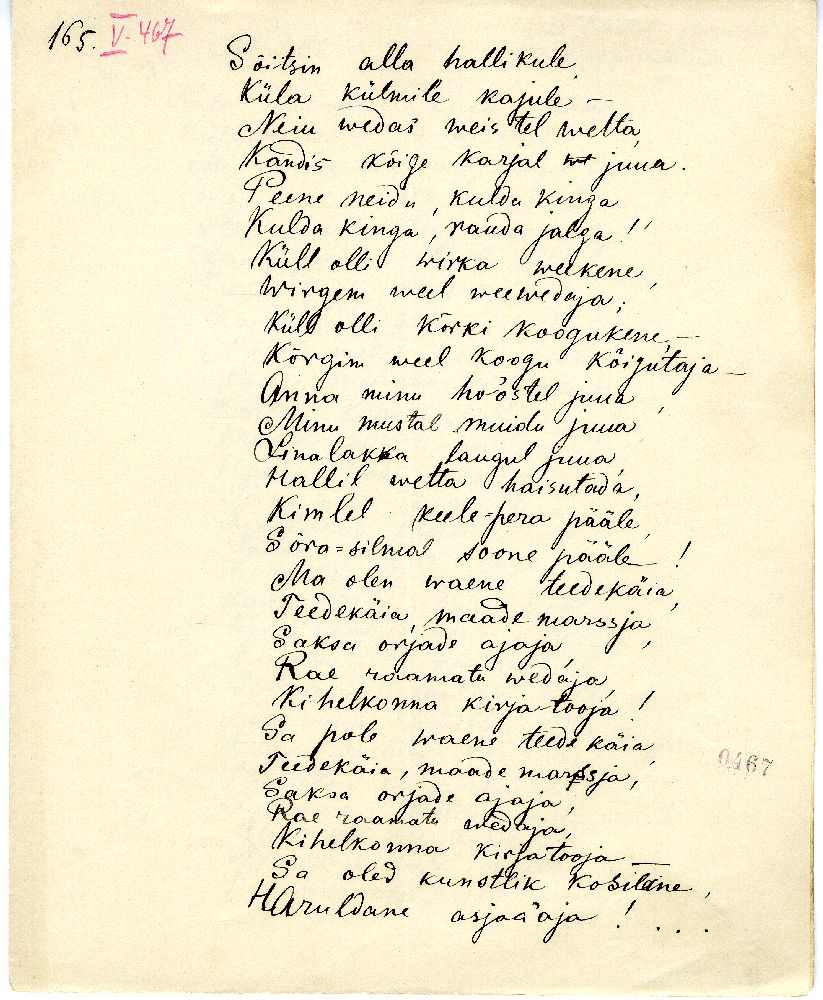 165. V. 467
Sõitsin alla hallikule,
Küla külmile kajule –
Neiu wedas weistel wetta,
Kandis kõige karjal juua.
Peene neidu, kulda kinga
Kulda kinga, rauda jalga!
Küll olli wirka weekene,
Wirgem weel weewedaja;
Küll olli kõrki koogukene, –
Kõrgim weel koogu kõigutaja –
Anna minu hoostel juua,
Minu mustal muidu juua,
Linalakka laugul juua,
Hallil wetta haisutada,
Kimlel keele-pera pääle,
Sõra-silmal soone pääle!
Ma olen waene teedekäia,
Teedekäia, maade marssja,
Saksa orjade ajaja,
Rae raamatu wedaja,
Kihelkonna kirja-tooja!
Sa pole waene teede käia,
Teedekäia, maade marssja,
Saksa orjade ajaja,
Rae raamatu wedaja,
Kihelkonna kirjatooja –
Sa oled kunstlik kosilane,
Haruldane asjaäaja! ...
0467